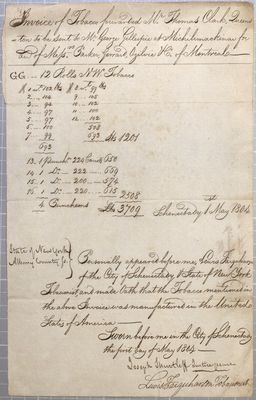 Invoice of Tobacco forwarded Mr Thomas Clark, Queens
ton to be sent to Mr George Gillespie at Michilimackinac for
acct of Messrs Parker Gerrard Ogilvie & Co of Montreal
GG 12 Rolls N W Tobacco
508
693
lbs 1201
693
13. 1 Puncheon 224 Carrots 650
14. 1 Do 222 669
15. 1 Do 200 574
1 Do 220 615
2508
4 Puncheons lbs 3709 Schenectady 1st May 1804
State of New York
Albany County ss.
Personally appeared before me, Lewis Farquharson
of the City of Schenectady & State of New York
Tobacconist and made Oath that the Tobacco mentioned in
the above Invoice was manufactured in the United
States of America
Sworn before me in the City of Schenectady
the first day of May 1804
Joseph Shurtleff
Lewis Farquharson Tobacconist